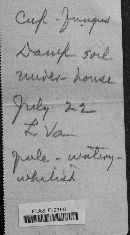 Cup-Fungus
Damp soil
under house
July 22
L Va
pale - watery -
whitish